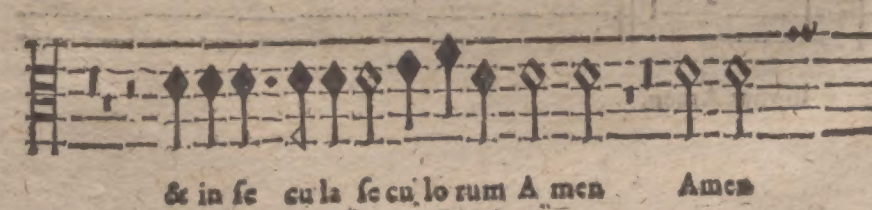 & in ſe cu la ſe cu lo rum A men Amen